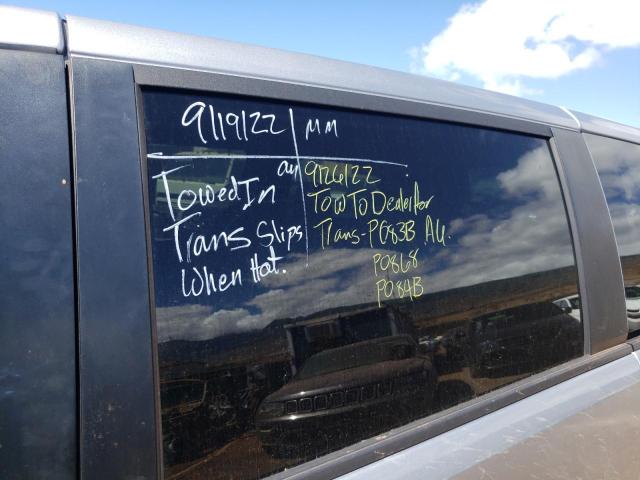 9/19/22 MM
Towed In
Trans Slips
When Hot.
9/26/22
Tow To Dealer for
Trans-P083B AU.
P0868
P084B